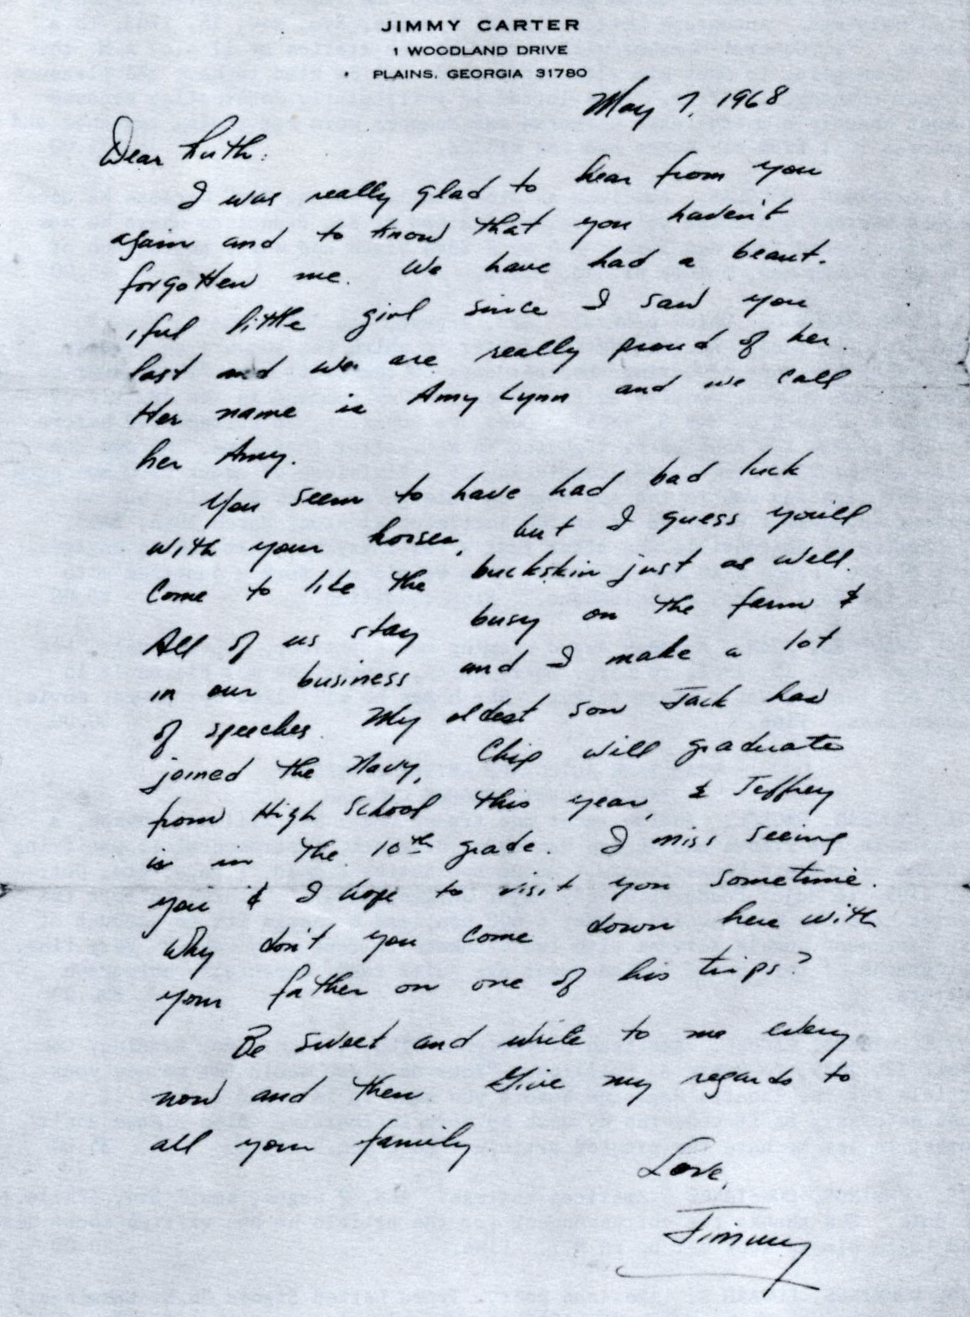 JIMMY CARTER
1 WOODLAND DRIVE
PLAINS, GEORGIA 31780
May 7, 1968
Dear Ruth:
I was really glad to hear from you
again and to know that you haven't
forgotten me. We have had a beaut-
iful little girl since I saw you
last and we are really proud of her
Her name is Amy Lynn and we call
her Amy.
You seem to have had bad luck
with your horses, but I guess you'll
come to like the buckskin just as well.
All of us stay busy on the farm &
in our business and I make a lot
of speeches. My oldest son Jack has
joined the Navy, Chip will graduate
from High School this year, & Jeffrey
is in the 10th grade. I miss seeing
you & I hope to visit you sometime.
Why don't you come down here with
your father on one of his trips?
Be sweet and write to me every
now and then Give my regards to
all your family
Love,
Jimmy